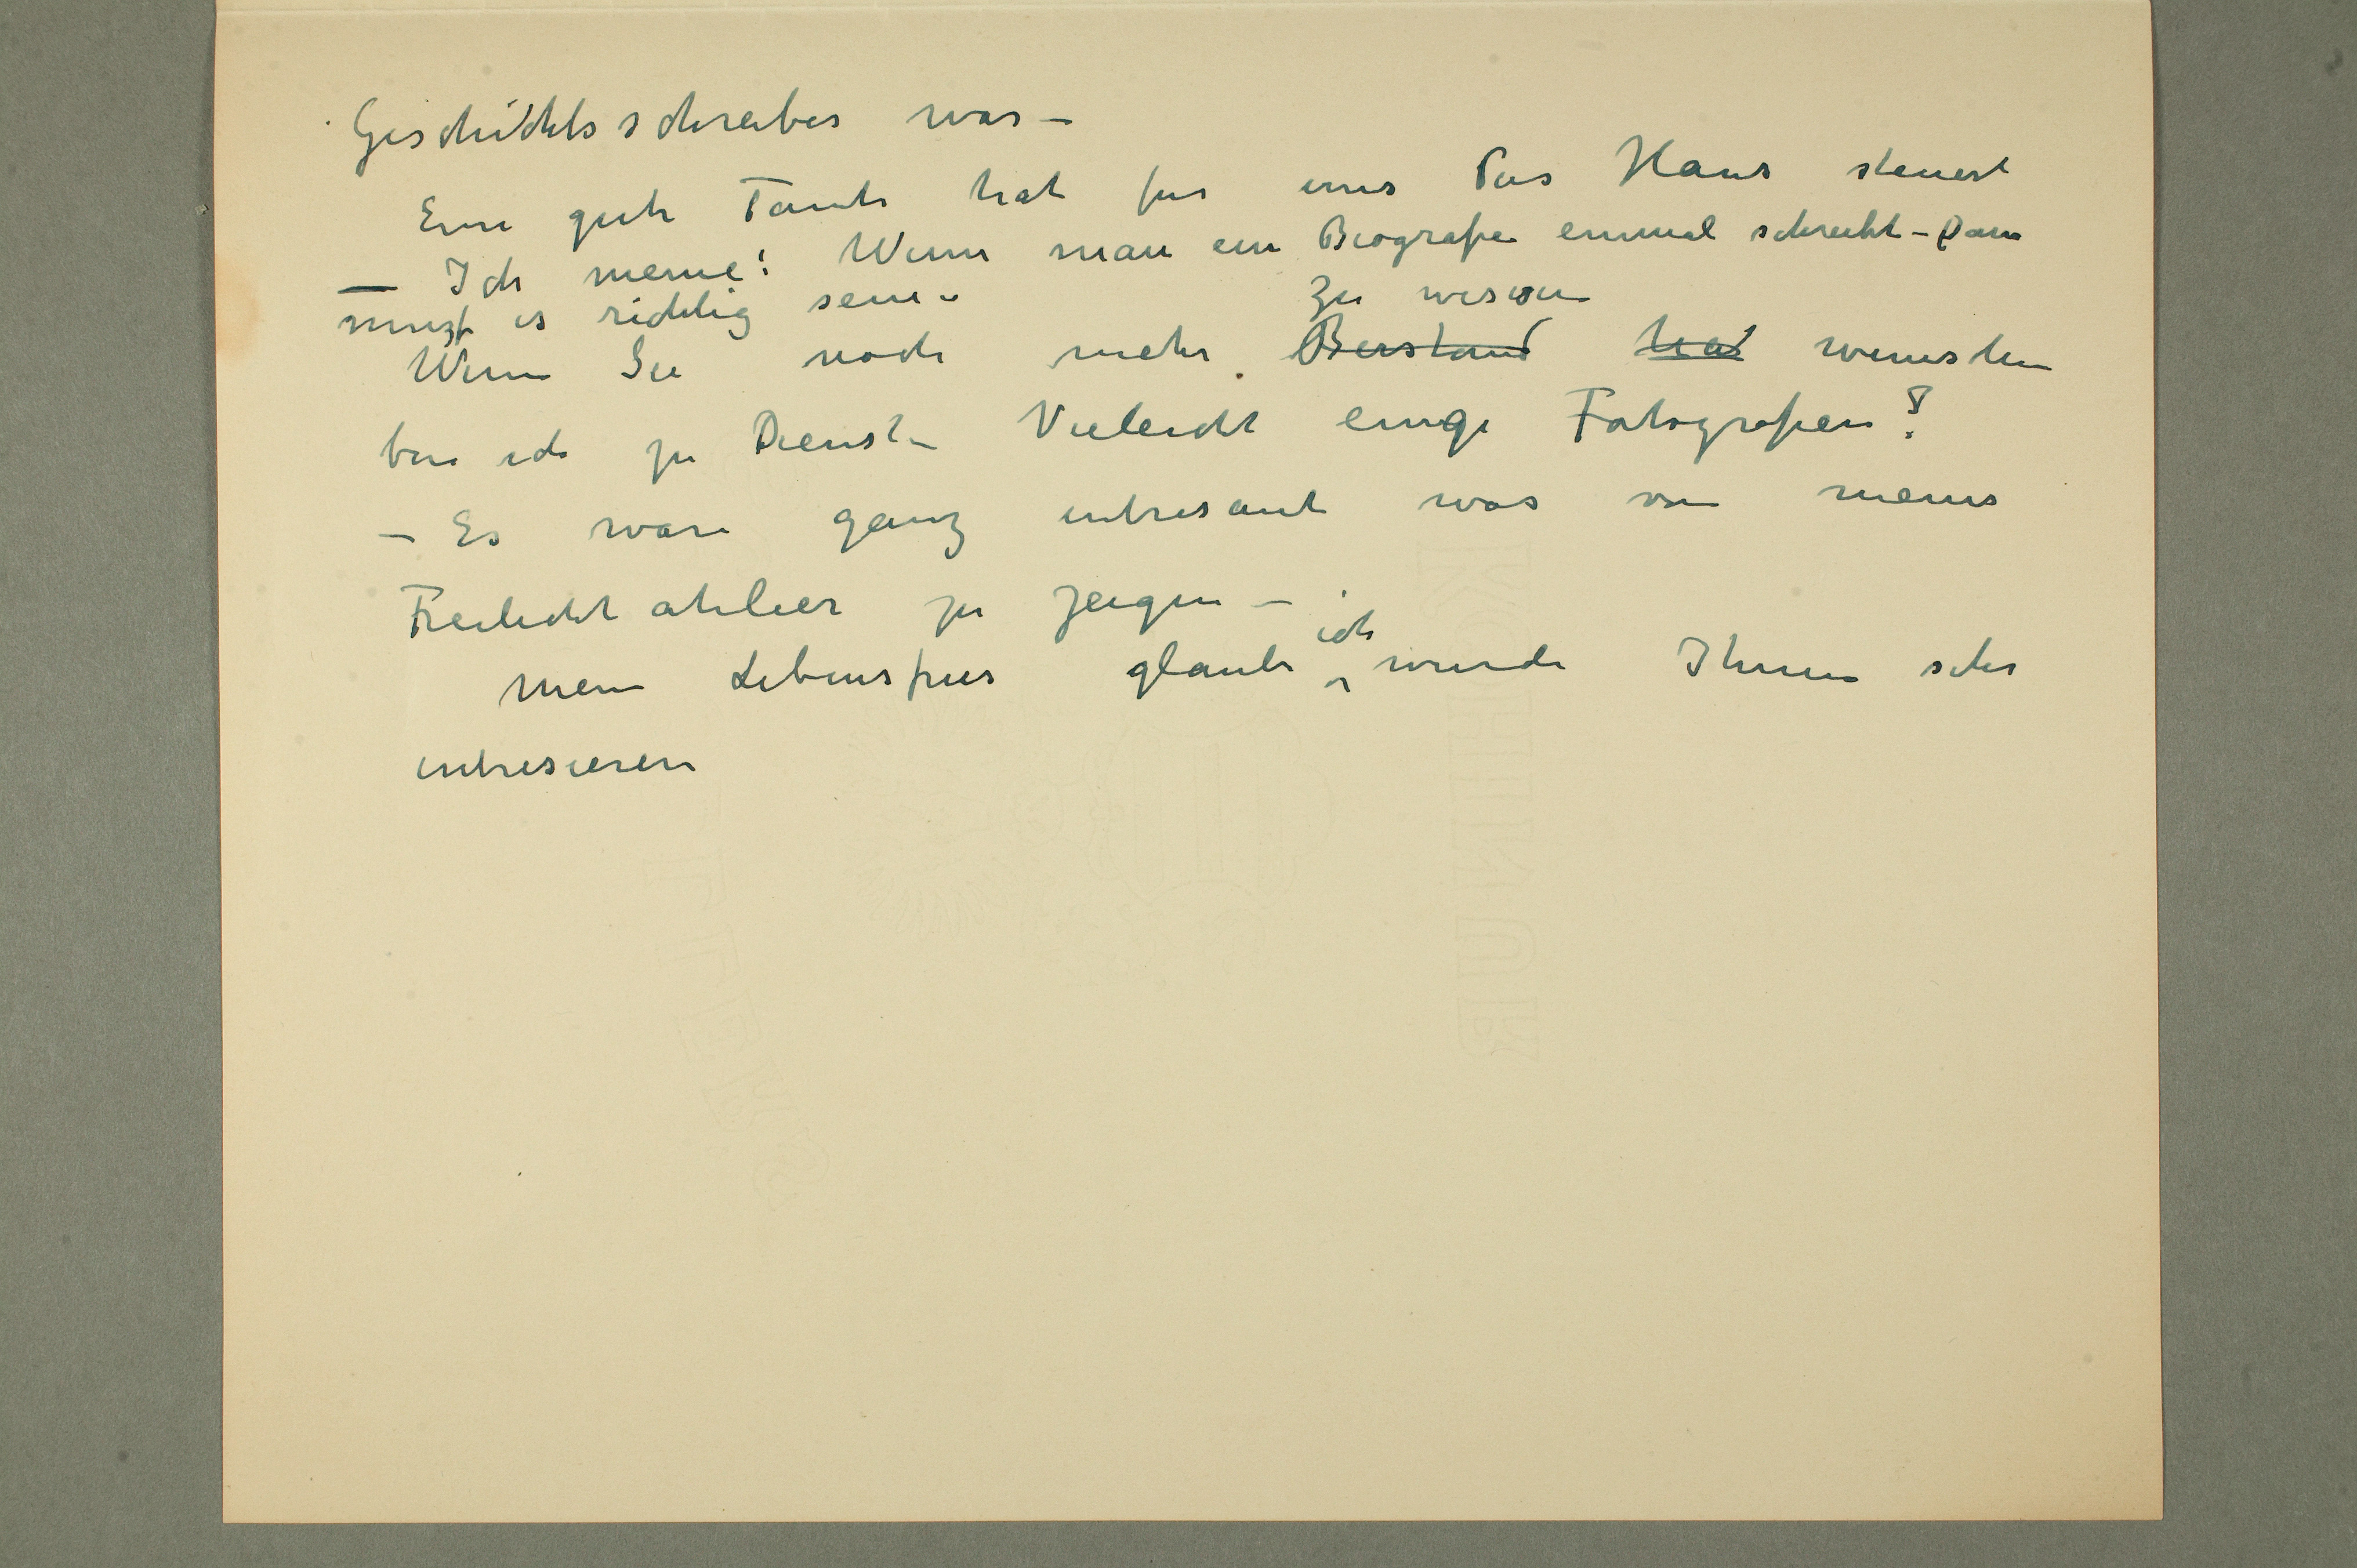 Geschichtsschreiber war –
Eine gute Tante hat fur uns das Haus steuert
– Ich meine: Wenn man ein Biografie einmal schreibt – Dann
muszt es richtig sein –
zu wissen
Wenn Sie noch mehr Beistand hat wunschen
bin ich zu Dienst – Vieleicht einige Fotografien?
– Es ware ganz intresant was von meins
Freilichtatelier zu zeigen –
ich
Mein Lebensfries glaube wurde Ihnen sehr
intresieren
KOHINUR